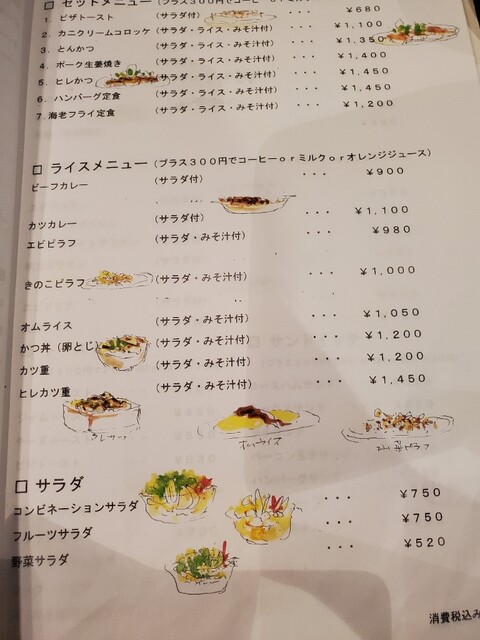 □ セットメニュー (プラス300円でコーヒーorミルク
1. ピザトースト (サラダ付) ・・・ ¥680
2. カニクリームコロッケ (サラダ・ライス・みそ汁付) ・・・ ¥1,100
3. とんかつ (サラダ・ライス・みそ汁付) ・・・ ¥1,350
4. ポーク生姜焼き (サラダ・ライス・みそ汁付) ・・・ ¥1,400
5. ヒレかつ (サラダ・ライス・みそ汁付) ・・・ ¥1,450
6. ハンバーグ定食 (サラダ・ライス・みそ汁付) ・・・ ¥1,450
7. 海老フライ定食 (サラダ・ライス・みそ汁付) ・・・ ¥1,200
□ ライスメニュー (プラス300円でコーヒーorミルクorオレンジジュース)
ビーフカレー (サラダ付) ・・・ ¥900
カツカレー (サラダ付) ・・・ ¥1,100
エビピラフ (サラダ・みそ汁付) ・・・ ¥980
きのこピラフ (サラダ・みそ汁付) ・・・ ¥1,000
オムライス (サラダ・みそ汁付) ・・・ ¥1,050
かつ丼(卵とじ) (サラダ・みそ汁付) ・・・ ¥1,200
カツ重 (サラダ・みそ汁付) ・・・ ¥1,200
ヒレカツ重 (サラダ・みそ汁付) ・・・ ¥1,450
オムライス
□ サラダ
コンビネーションサラダ ・・・ ¥750
フルーツサラダ ・・・ ¥750
野菜サラダ ・・・ ¥520
消費税込み